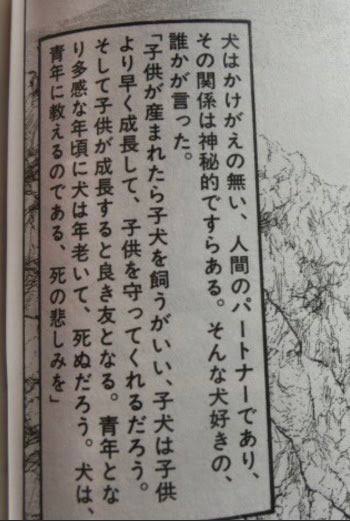 犬はかけがえの無い、人間のパートナーであり、
その関係は神秘的ですらある。そんな犬好きの、
誰かが言った。
「子供が産まれたら子犬を飼うがいい、子犬は子供
より早く成長して、子供を守ってくれるだろう。
そして子供が成長すると良き友となる。青年とな
り多感な年頃に犬は年老いて、死ぬだろう。犬は、
青年に教えるのである、死の悲しみを」